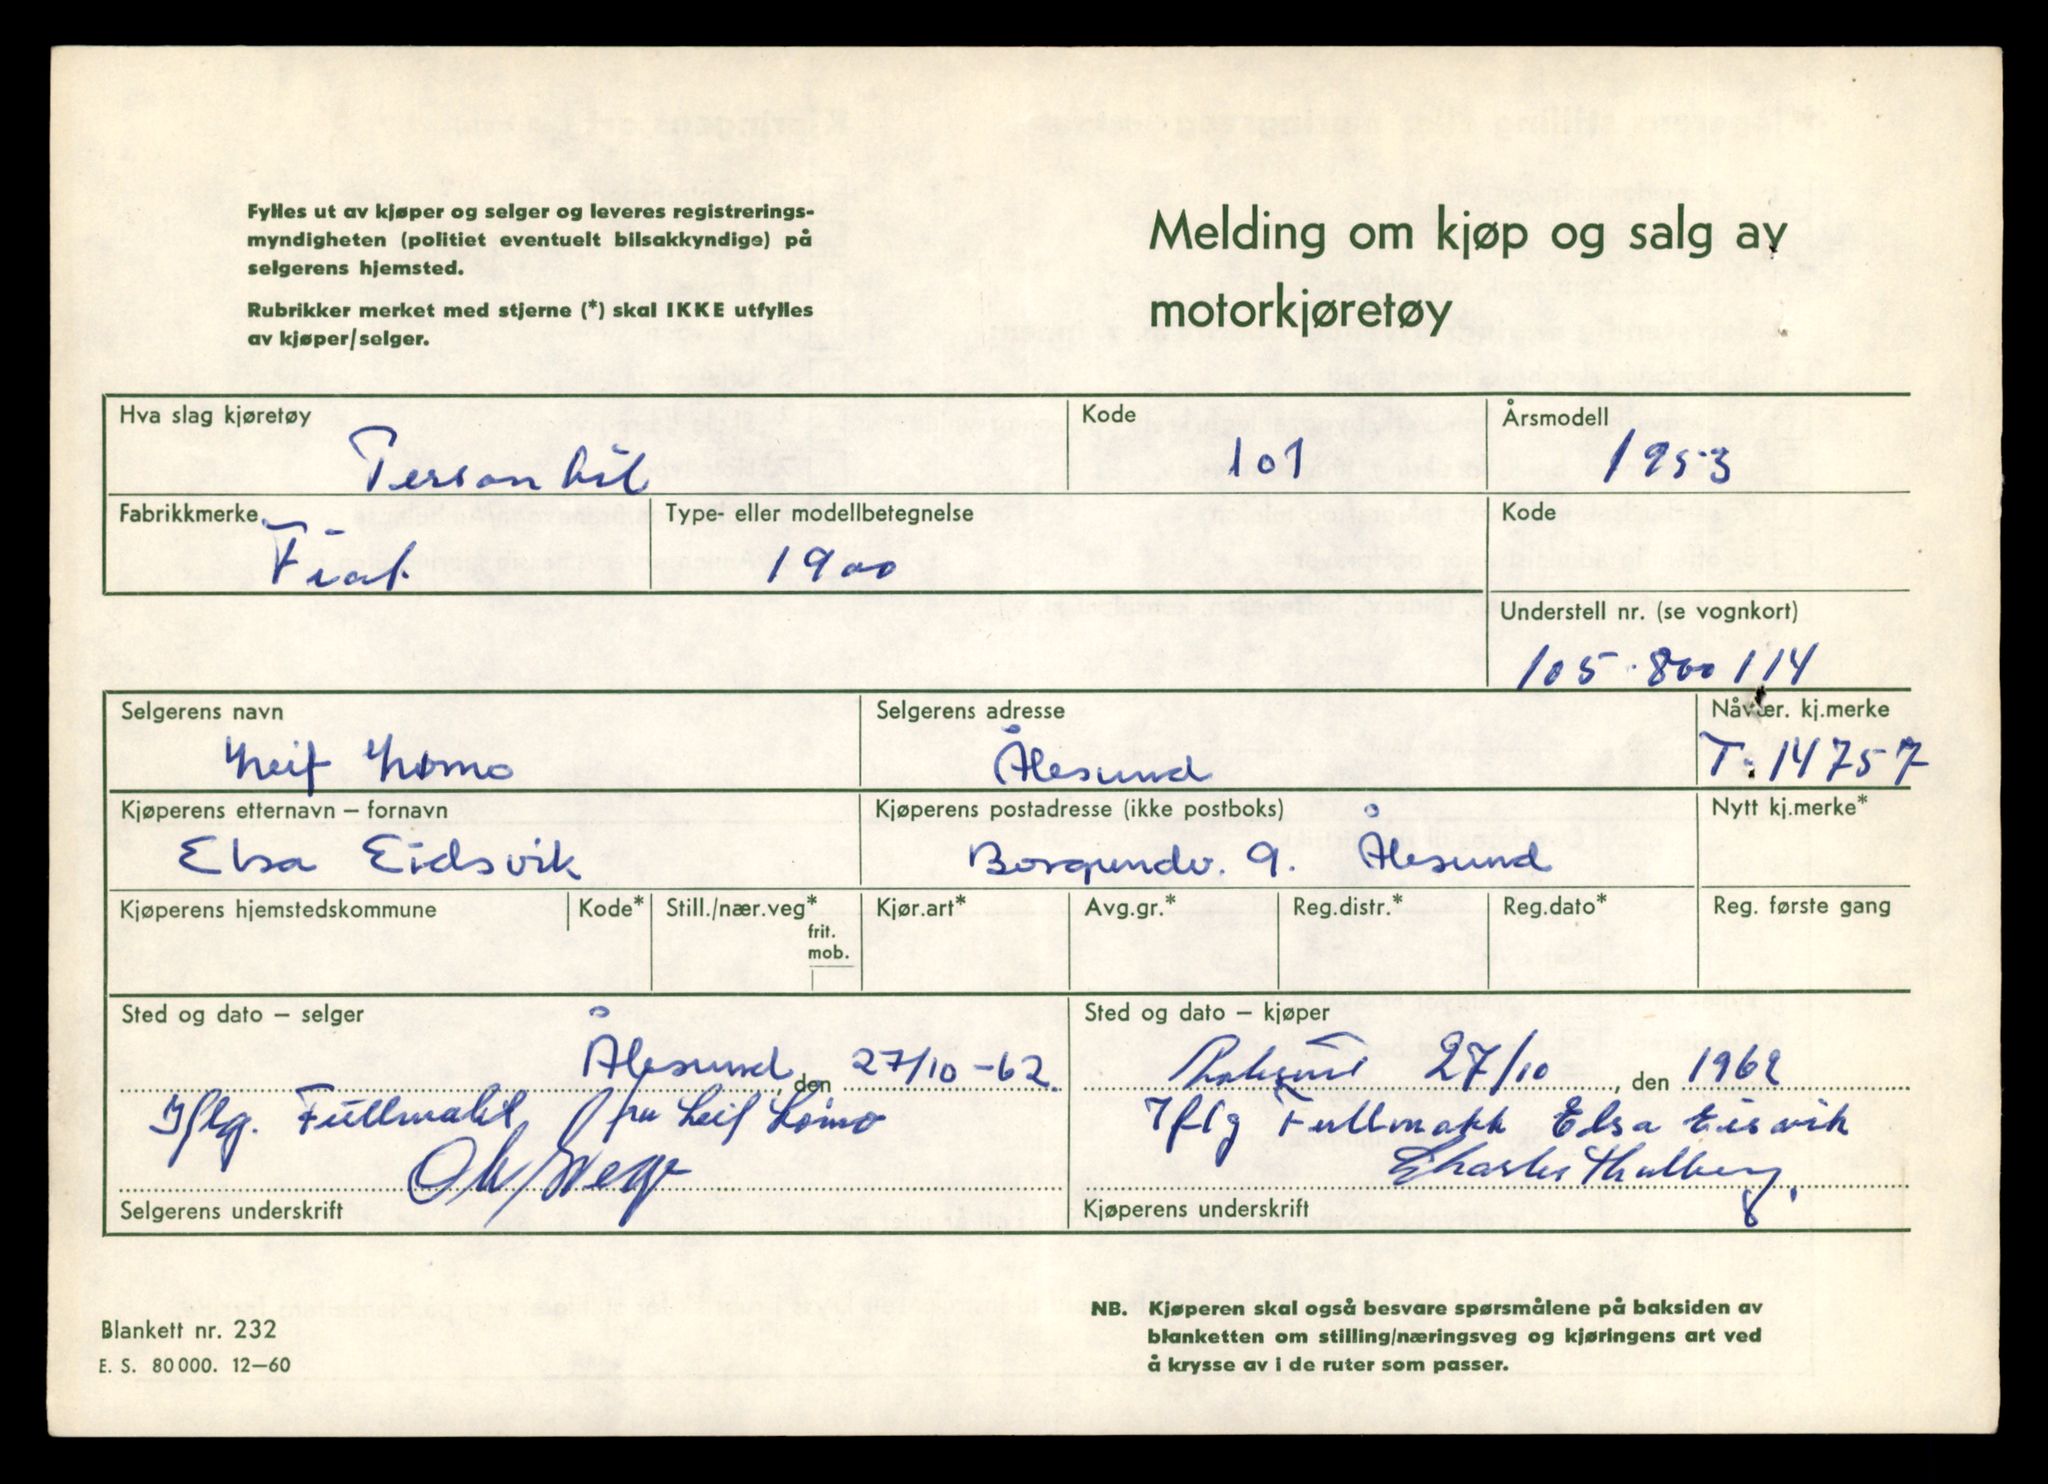 Fylles ut av kjøper og selger og leveres registrerings-
myndigheten (politiet eventuelt bilsakkyndige) på
selgerens hjemsted.
Rubrikker merket med stjerne (*) skal IKKE utfylles
av kjøper/selger.
Melding om kjøp og salg av
motorkjøretøy
Hva slag kjøretøy Kode Årsmodell
Personbil 101 1953
Fabrikkmerke Type- eller modellbetegnelse Kode
Fiat 1900
Understell nr. (se vognkort)
105.800114
Selgerens navn Selgerens adresse Nåvær. kj.merke
Leif Lømo Ålesund T.14757
Kjøperens etternavn – fornavn Kjøperens postadresse (ikke postboks) Nytt kj.merke*
Elsa Eidsvik Borgundv. 9. Ålesund
Kjøperens hjemstedskommune Kode* Still./nær.veg* Kjør.art* Avg.gr.* Reg.distr.* Reg.dato* Reg. første gang
frit.
mob.
Sted og dato – selger Sted og dato – kjøper
Ålesund den 27/10-62 27/10, den 1962
Iflg. Fullmakt fra Leif Lømo Iflg Fullmakk Elsa Eisvik
Charles Thalberg.
Selgerens underskrift Kjøperens underskrift
Blankett nr. 232
E. S. 80 000. 12–60
NB. Kjøperen skal også besvare spørsmålene på baksiden av
blanketten om stilling/næringsveg og kjøringens art ved
å krysse av i de ruter som passer.